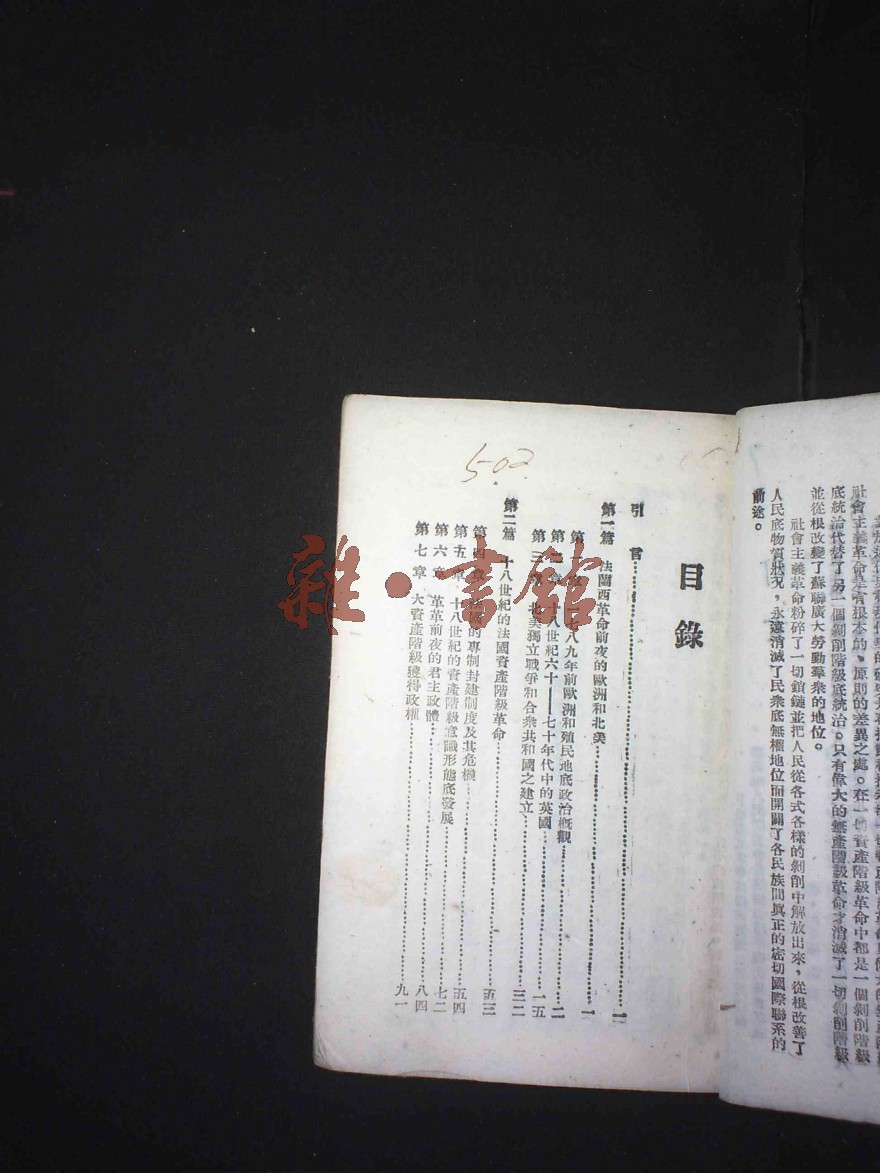 社會主義革命是有根本的、原則的差異之處。在一切資產階級革命中都是一個剝削階級
底統治代替了另一個剝削階級底統治。只有偉大的無產階級革命才消滅了一切剝削階級
並從根改變了蘇聯廣大勞動羣衆的地位。
社會主義革命粉碎了一切鎖鏈並把人民從各式各樣的剝削中解放出來，從根改善了
人民底物質狀況，永遠消滅了民衆底無權地位而開闢了各民族間眞正的密切國際聯系的
前途。
502
目錄
引言
第一篇 法蘭西革命前夜的歐洲和北美 一
八九年前歐洲和殖民地底政治槪觀 二
第二章 十八世紀六十——七十年代中的英國 一五
第三章 北美獨立戰爭和合衆共和國之建立 三二
第二篇 十八世紀的法國資產階級革命 五三
第四章 的專制封建制度及其危機 五四
第五章 十八世紀的資產階級意識形態底發展 七二
第六章 革革前夜的君主政體 八四
第七章 大資產階級獲得政權 九一
雜·書館